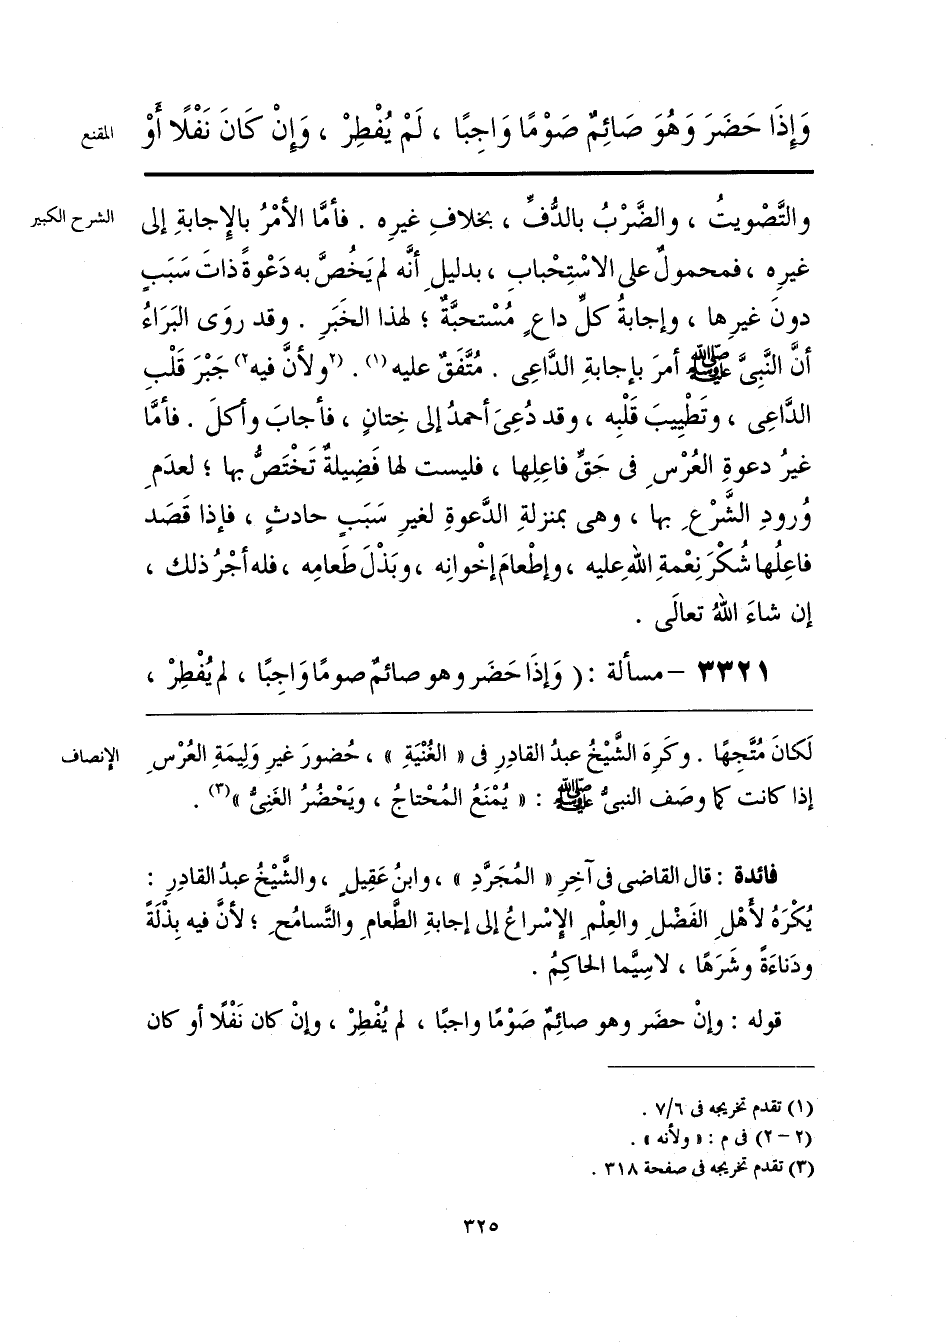 المقنع
وَإِذَا حَضَرَ وَهُوَ صَائِمٌ صَوْمًا وَاجِبًا ، لَمْ يُفْطِرْ ، وَإِنْ كَانَ نَفْلًا أَوْ
الشرح الكبير
والتَّصْويتُ ، والضَّرْبُ بالدُّفِّ ، بخلافِ غيرِه . فأمَّا الأمْرُ بالإِجابةِ إلى
غيرِه ، فمحمولٌ على الاسْتِحْبابِ ، بدليلِ أنَّه لم يَخُصَّ به دَعْوةً ذاتَ سَبَبٍ
دونَ غيرِها ، وإجابةُ كلِّ داعٍ مُسْتحبَّةٌ ؛ لهذا الخَبَرِ . وقد روَى البَرَاءُ
أنَّ النَّبِىَّ ﷺ أمرَ بإجابةِ الدَّاعِى . مُتَّفَقٌ عليه(١) . (٢ولأنَّ فيه٢) جَبْرَ قَلْبِ
الدَّاعِى ، وتَطْيِيبَ قَلْبِه ، وقد دُعِىَ أحمدُ إلى خِتانٍ ، فأجابَ وأكلَ . فأمَّا
غيرُ دعوةِ العُرْسِ فى حَقِّ فاعِلِها ، فليست لها فَضِيلةٌ تَخْتَصُّ بها ؛ لعدَمِ
وُرودِ الشَّرْعِ بها ، وهى بمنزلةِ الدَّعوةِ لغيرِ سَبَبٍ حادثٍ ، فإذا قَصَد
فاعِلُها شُكْرَ نِعْمةِ اللهِ عليه ، وإطْعامَ إخْوانِه ، وبَذْلَ طَعامِه ، فله أجْرُ ذلك ،
إن شاءَ اللهُ تعالَى .
٣٣٢١ – مسألة : ( وَإِذَا حَضَر وهو صائمٌ صومًا وَاجِبًا ، لم يُفْطِرْ ،
الإنصاف
لَكانَ مُتَّجِهًا . وكَرِهَ الشَّيْخُ عبدُ القادِرِ فى « الغُنْيَةِ » ، حُضورَ غيرِ وَلِيمَةِ العُرْسِ
إذا كانت كما وصَف النبىُّ ﷺ : « يُمْنَعُ المُحْتاجُ ، ويَحْضُرُ الغَنِىُّ »(٣) .
فائدة : قال القاضى فى آخِرِ « المُجَرَّدِ » ، وابنُ عَقِيلٍ ، والشَّيْخُ عبدُ القادِرِ :
يُكْرَهُ لأَهْلِ الفَضْلِ والعِلْمِ الإِسْراعُ إلى إجابةِ الطَّعامِ والتَّسامُحِ ؛ لأنَّ فيه بِذْلَةً
ودَناءَةً وشَرَهًا ، لاسِيَّما الحاكِمُ .
قوله : وإنْ حضَر وهو صائِمٌ صَوْمًا واجبًا ، لم يُفْطِرْ ، وإنْ كان نَفْلًا أو كان
(١) تقدم تخريجه فى ٧/٦ .
(٢ – ٢) فى م : « ولأنه » .
(٣) تقدم تخريجه فى صفحة ٣١٨ .
٣٢٥